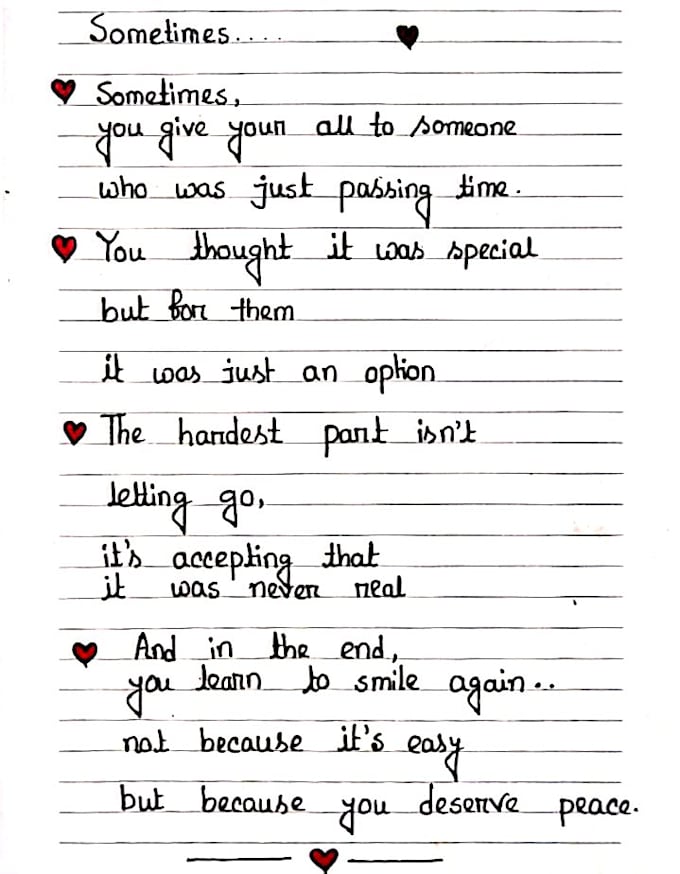 Sometimes....
Sometimes,
you give your all to someone
who was just passing time.
You thought it was special
but for them
it was just an option
The hardest part isn't
letting go,
it's accepting that
it was never real
And in the end,
you learn to smile again..
not because it's easy
but because you deserve peace.